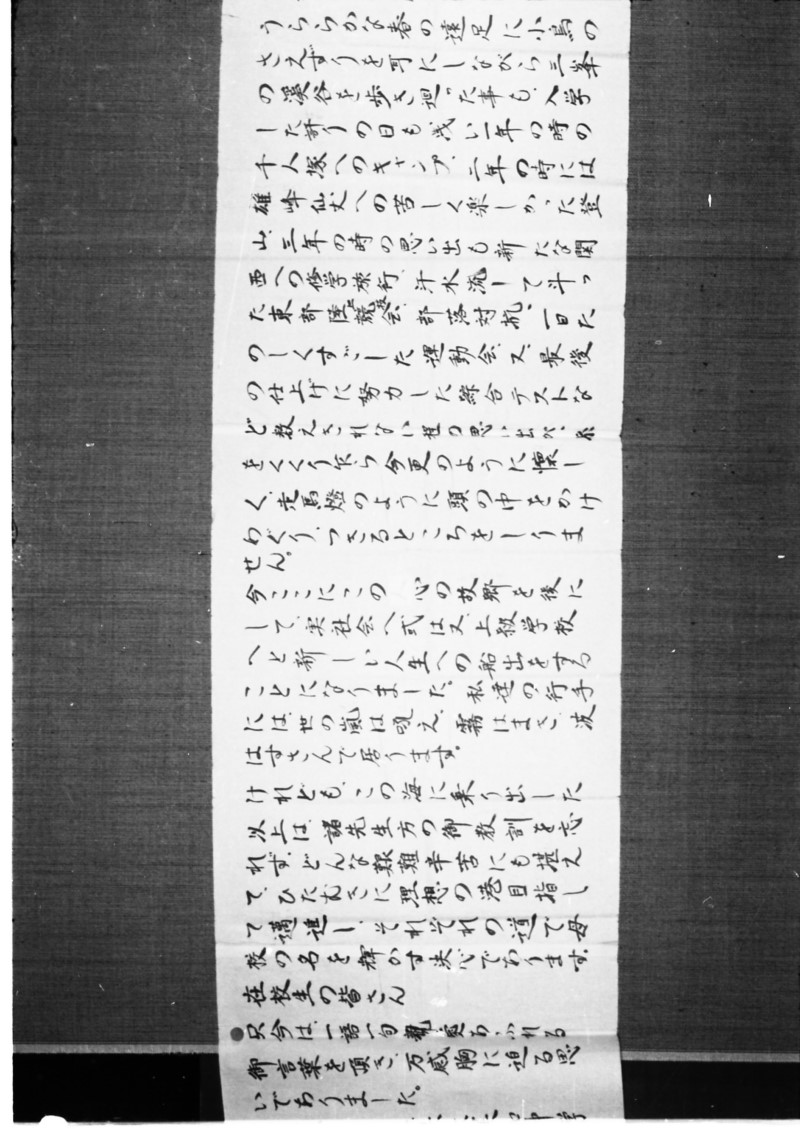 うららかな春の遠足に小鳥の
さえずりを耳にしながら三峯
の溪谷を歩き廻った事も、入学
した許りの日も浅い一年の時の
千人塚へのキャンプ、二年の時には
雄峰仙丈への苦しく楽しかった登
山、三年の時の思い出も新たな関
西への修学旅行、汗水流して斗っ
た東部陸上競技会、部落対抗、一日た
のしくすごした運動会、又、最後
の仕上げに努力した綜合テストな
ど数えきれない程の思い出が、糸
をくくりだら今更のように懐し
く、走馬燈のように頭の中をかけ
わぐり、つきるところをしりま
せん。
今ここにこの 心の故郷を後に
して、実社会へ或は又、上級学校
へと新しい人生への船出をする
ことになりました。私達の行手
には、世の嵐は吼え、霧はまき、波
はすさんで居ります。
けれども、この海に乗り出した
以上は、諸先生方の御教訓を忘
れず、どんな艱難辛苦にも堪え
て、ひたむきに理想の港目指し
て邁進し、それぞれの道で母
校の名を輝かす決心であります。
在校生の皆さん
只今は、一語一句 あふれる
御言葉を頂き、万感胸に迫る思
いでありました。